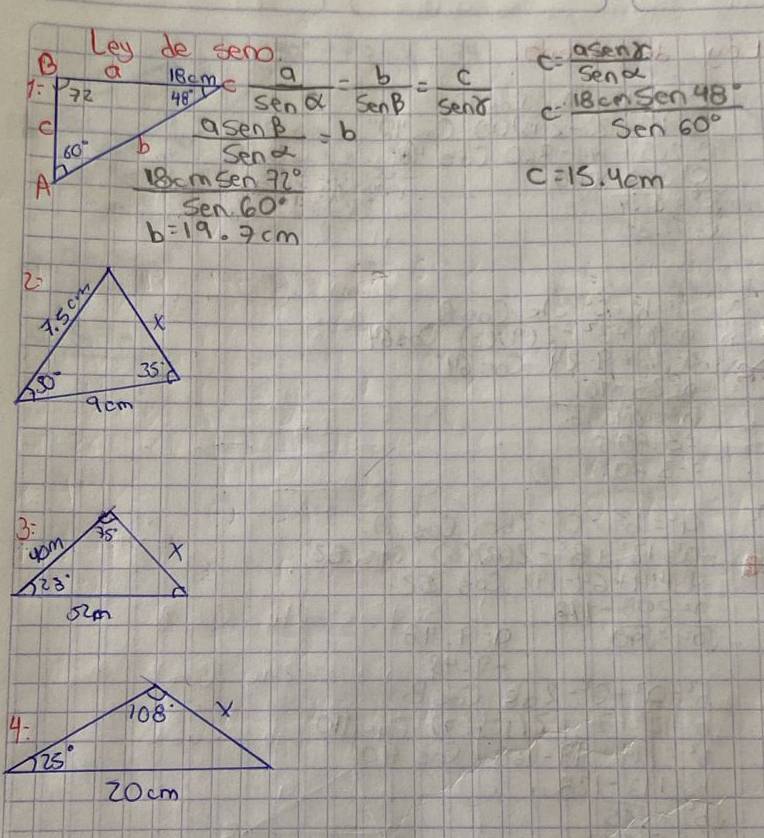 Ley de seno.
1=
B
a
18cm
C
72
48°
c
b
60°
A
a/sen α = b/sen β = c/sen γ
a sen β/sen α = b
18cm sen 72°/sen 60°
b=19.7cm
c= a sen γ/sen α
c= 18cm sen 48°/sen 60°
c=15.4cm
2=
7.5cm
x
35°
9cm
3=
75°
x
23°
4=
108°
x
25°
20cm